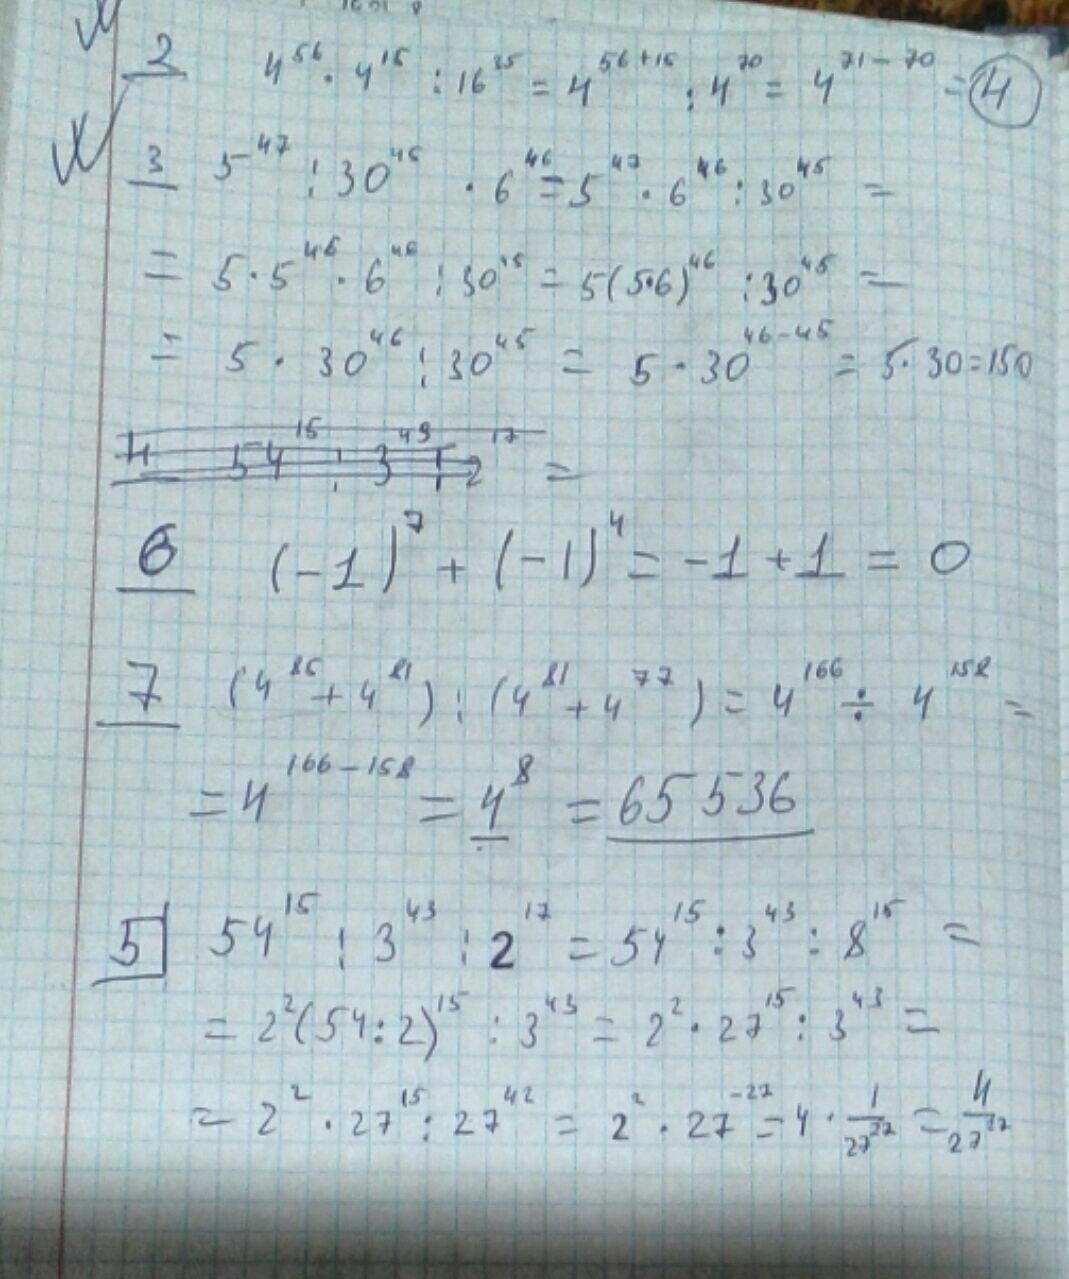 2 4^56 · 4^15 : 16^35 = 4^(56+15) : 4^70 = 4^(71-70) = 4
3 5^47 : 30^45 · 6^46 = 5^47 · 6^46 : 30^45 =
= 5 · 5^46 · 6^46 : 30^45 = 5(5·6)^46 : 30^45 =
= 5 · 30^46 : 30^45 = 5 · 30^(46-45) = 5 · 30 = 150
4 54^15 : 3^43 : 2^17 =
6 (-1)^7 + (-1)^4 = -1 + 1 = 0
7 (4^85 + 4^81) : (4^81 + 4^77) = 4^166 ÷ 4^158 =
= 4^(166-158) = 4^8 = 65 536
5 54^15 : 3^43 : 2^17 = 54^15 : 3^43 : 8^15 =
= 2^2(54:2)^15 : 3^43 = 2^2 · 27^15 : 3^43 =
= 2^2 · 27^15 : 27^42 = 2^2 · 27^-27 = 4 · 1/27^27 = 4/27^27